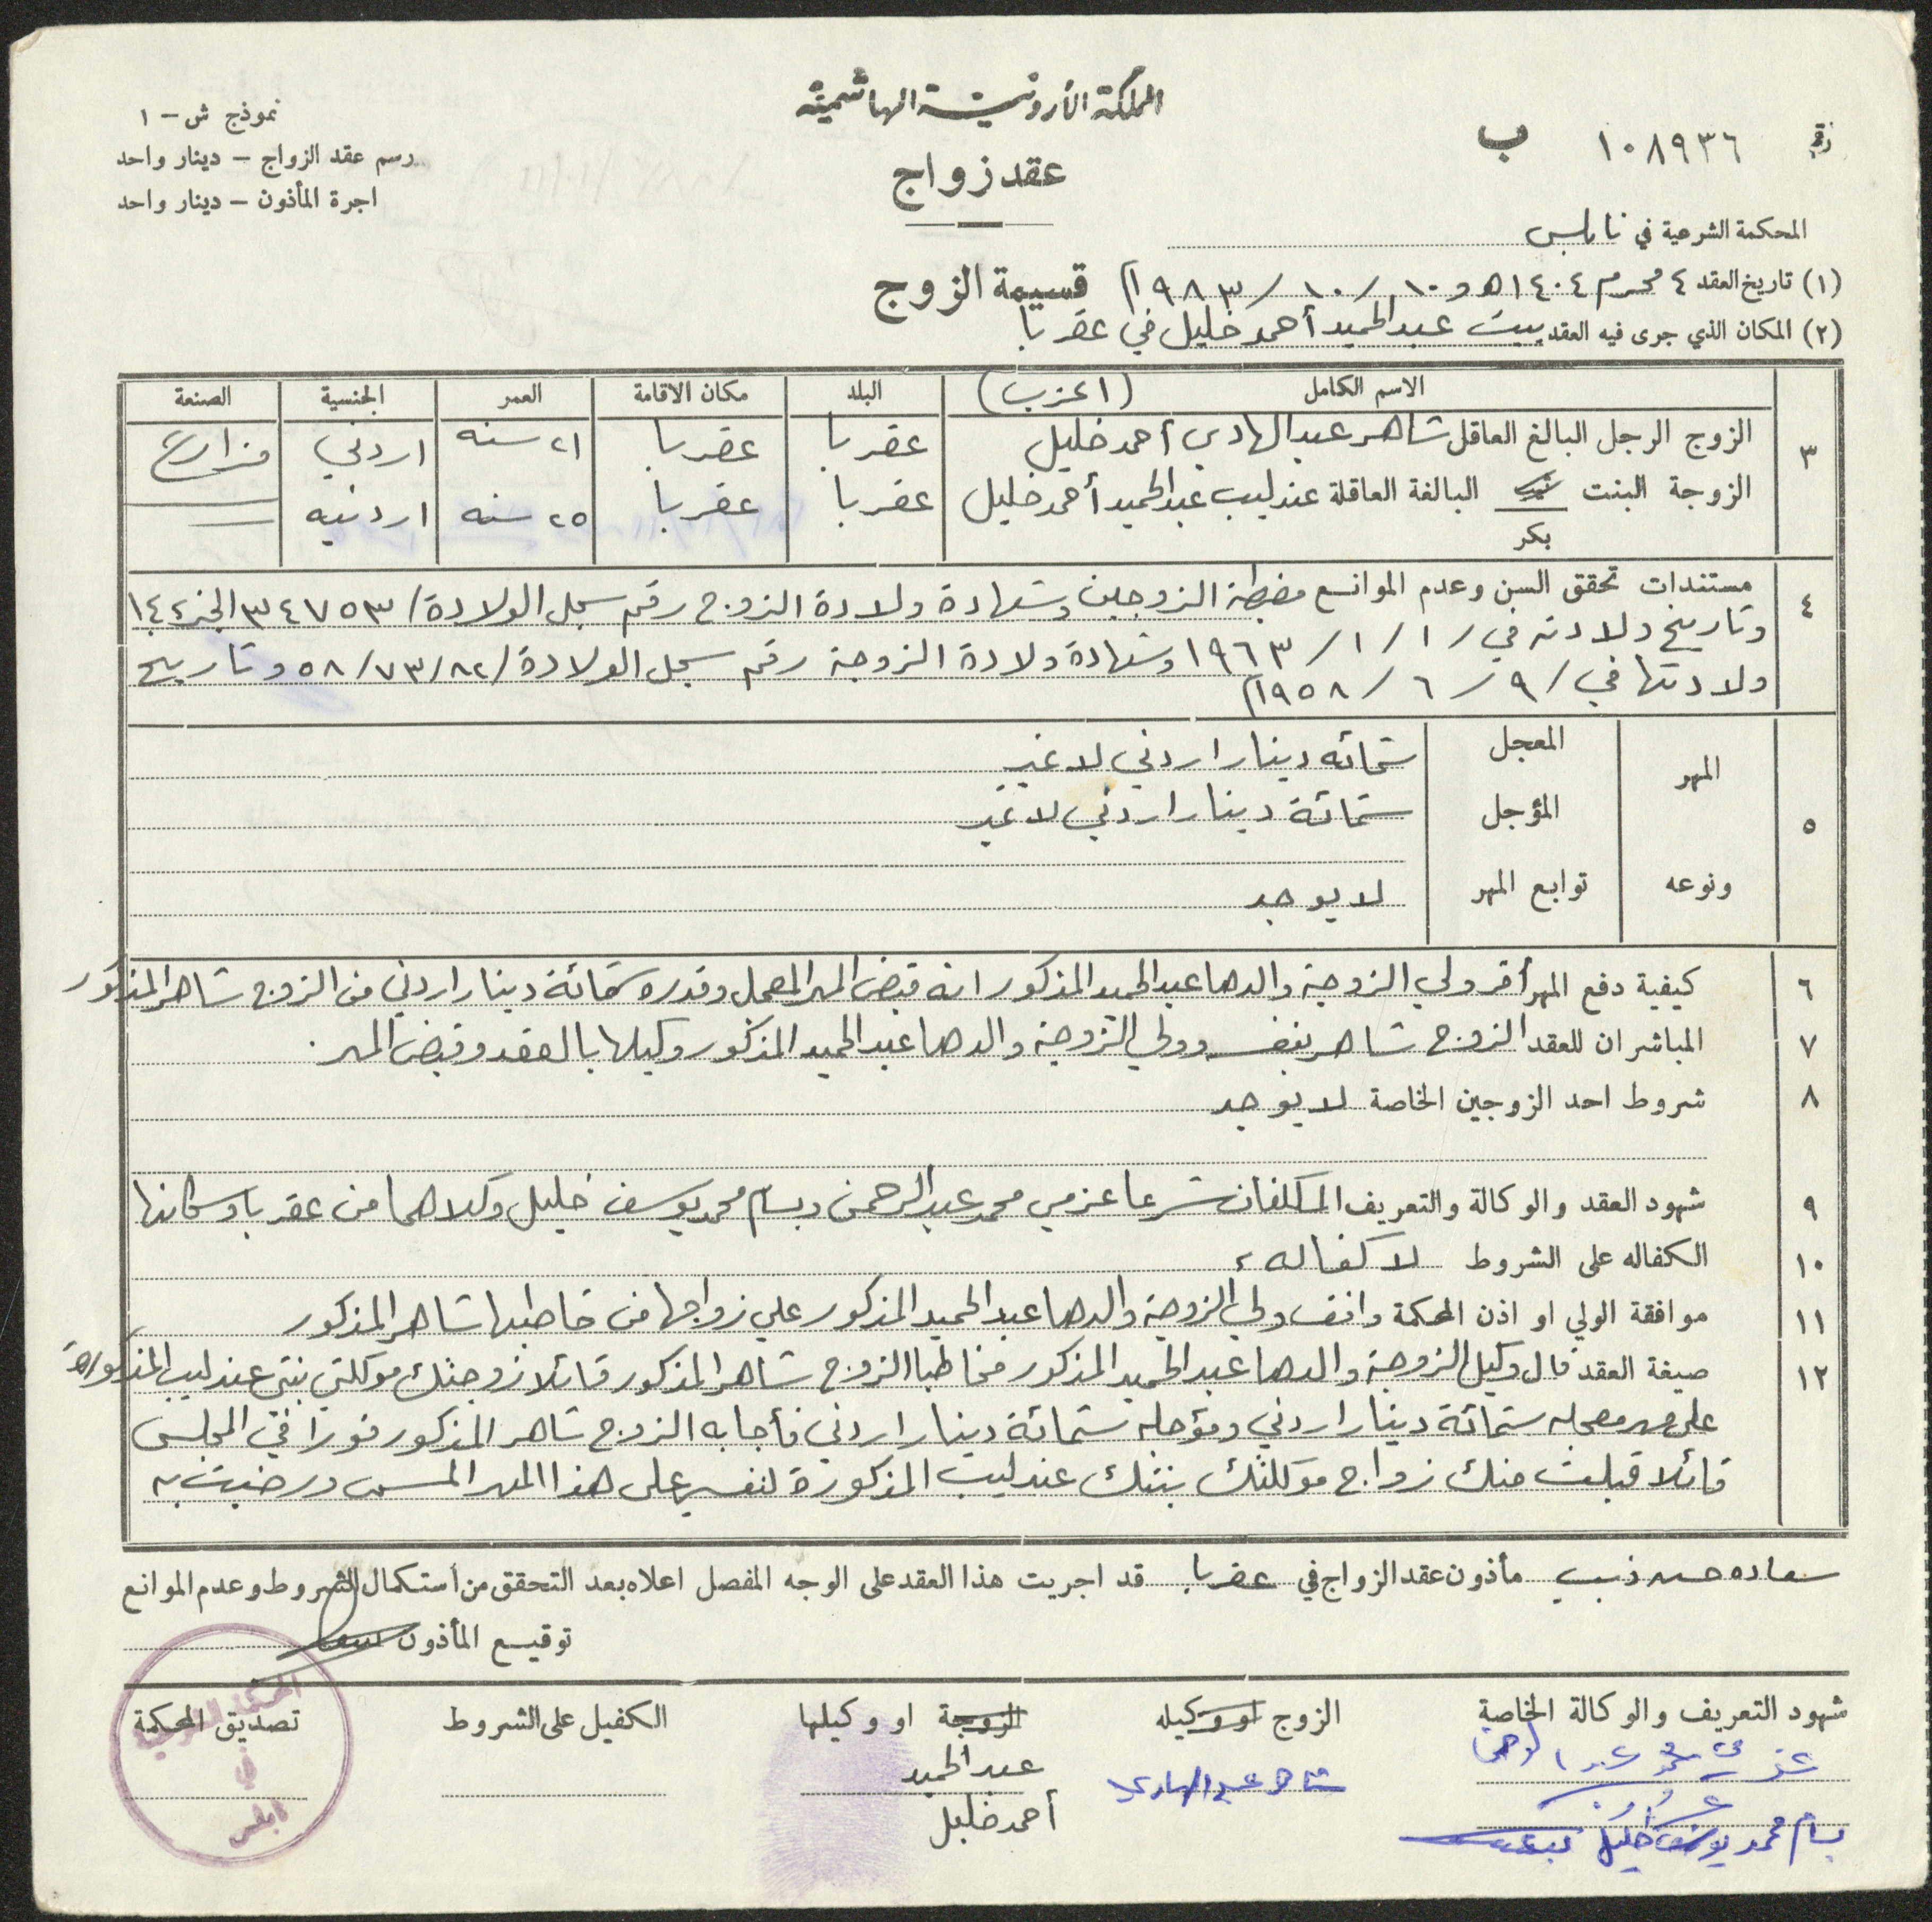 المملكة الأردنية الهاشمية
نموذج ش - ١
رقم ١٠٨٩٣٦ ب
رسم عقد الزواج - دينار واحد
عقد زواج
اجرة المأذون - دينار واحد
المحكمة الشرعية في نابلس
(١) تاريخ العقد ٤ محرم ١٤٠٤هـ و ١٠/١٠/١٩٨٣م قسيمة الزوج
(٢) المكان الذي جرى فيه العقد بيت عبدالحميد أحمد خليل في عقربا
الاسم الكامل (اعزب) البلد مكان الاقامة العمر الجنسية الصنعة
٣ الزوج الرجل البالغ العاقل شاهر عبدالهادي أحمد خليل عقربا عقربا ٢١ سنه اردني مزارع
الزوجة البنت البالغة العاقلة عندليب عبدالحميد أحمد خليل عقربا عقربا ٢٥ سنه اردنيه
بكر
٤ مستندات تحقق السن وعدم الموانع مضبطة الزوجين وشهادة ولادة الزوج رقم سجل الولادة/ ٣٤٧٥٣ الجزء ١٤٤
وتاريخ ولادته في/ ١/ ١/ ١٩٦٣ وشهادة ولادة الزوجة رقم سجل الولادة/ ٥٨/٧٣/٨٢ وتاريخ
ولادتها في/ ٩/ ٦/ ١٩٥٨م
٥ المهر المعجل ستمائه دينار اردني لا غير
المؤجل ستمائة دينار اردني لا غير
ونوعه توابع المهر لا يوجد
٦ كيفية دفع المهر أقر ولي الزوجة والدها عبدالحميد المذكور انه قبض المهر المعجل وقدره ستمائة دينار اردني من الزوج شاهر المذكور
٧ المباشران للعقد الزوج شاهر بنفسه وولي الزوجة والدها عبدالحميد المذكور وكيلها بالعقد وقبض المهر.
٨ شروط احد الزوجين الخاصة لا يوجد
٩ شهود العقد والوكالة والتعريف المكلفان شرعا عزمي محمد عبدالرحمن وبسام محمد يوسف خليل وكلاهما من عقربا وسكانها
١٠ الكفاله على الشروط لا كفاله
١١ موافقة الولي او اذن المحكمة وافق ولي الزوجة والدها عبدالحميد المذكور على زواجها من خاطبها شاهر المذكور
١٢ صيغة العقد قال وكيل الزوجة والدها عبدالحميد المذكور مخاطبا الزوج شاهر المذكور قائلا زوجتك موكلتي بنتي عندليب المذكورة
على مهر معجله ستمائة دينار اردني ومؤجله ستمائة دينار اردني فأجابه الزوج شاهر المذكور فورا في المجلس
قائلا قبلت منك زواج موكلتك بنتك عندليب المذكورة لنفسي على هذا المهر المسمى ورضيت به
سعاده حسن ذيب مأذون عقد الزواج في عقربا قد اجريت هذا العقد على الوجه المفصل اعلاه بعد التحقق من أستكمال الشروط وعدم الموانع
توقيع المأذون
شهود التعريف والوكالة الخاصة الزوج او وكيله الزوجة او وكيلها الكفيل على الشروط تصديق المحكمة
عزمي محمد عبدالرحمن شاهر عبدالهادي عبدالحميد
أحمد خليل
بسام محمد يوسف خليل
المحكمة الشرعية
في
نابلس